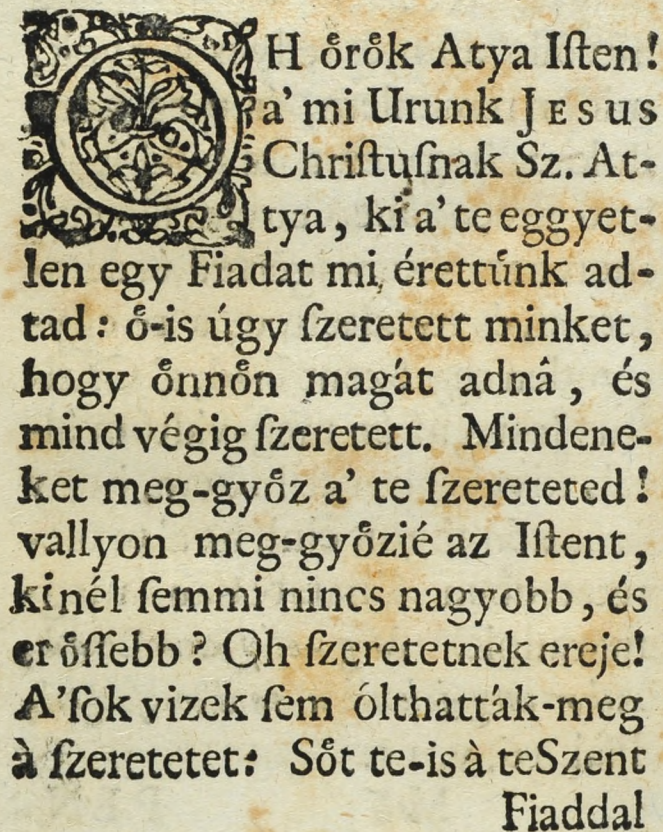 OH oͤroͤk Atya Iſten!
a' mi Urunk JESUS
Chriſtuſnak Sz. At-
tya, ki a' te eggyet-
len egy Fiadat mi érettünk ad-
tad: oͤ-is úgy ſzeretett minket,
hogy oͤnnoͤn magát adnâ, és
mind végig ſzeretett. Mindene-
ket meg-gyoͤz a' te ſzereteted!
vallyon meg-gyoͤzié az Iſtent,
kinél ſemmi nincs nagyobb, és
eroͤſſebb? Oh ſzeretetnek ereje!
A' ſok vizek ſem ólthatták-meg
à ſzeretetet: Soͤt te-is à te Szent
Fiaddal